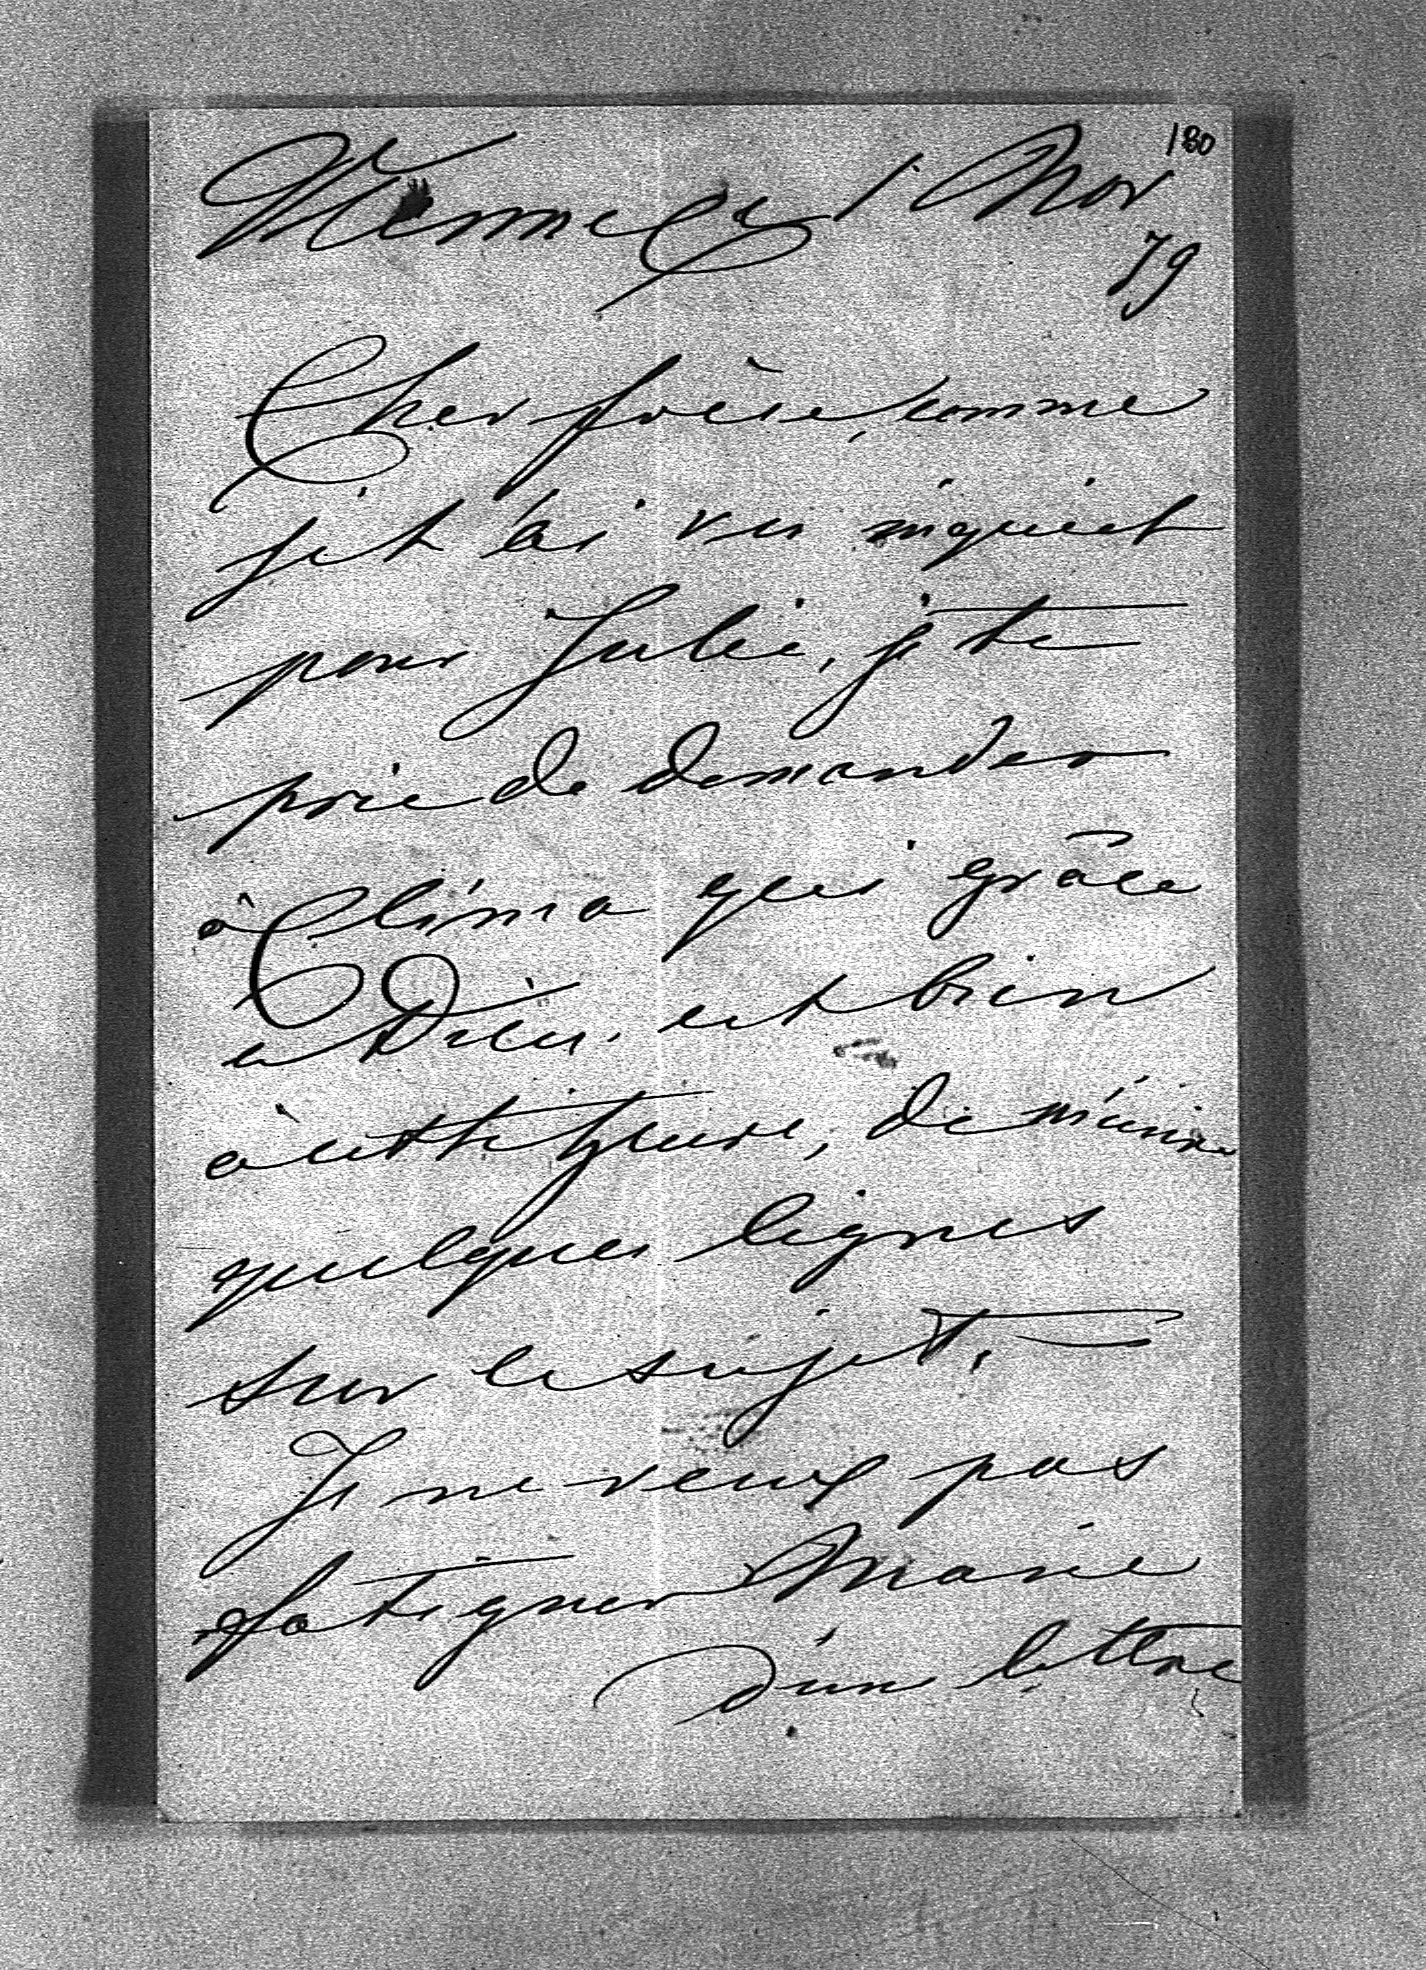 180
Vienne le 1 Nov
79
Cher frère, comme
je t'ai vu inquiet
pour Julie, je te
prie de demander
à Clima qui grâce
a Dieu. est bien
à cette heure, de m'écrire
quelques lignes
sur le sujet.
Je ne veux pas
fatiguer Marie
d'une lettre